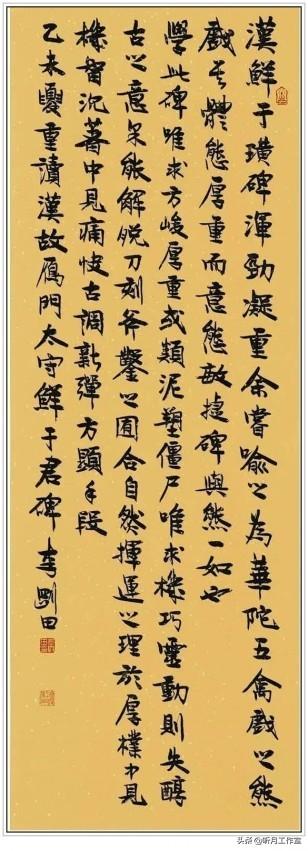 漢鮮于璜碑渾勁凝重余嘗喻之為華陀五禽戲之熊
戲其體態厚重而意態敏捷碑與熊一如也
學此碑唯求方峻厚重或類泥塑僵尸唯求機巧靈動則失醇
古之意果能解脫刀刻斧鑿之囿合自然揮運之理於厚樸中見
機智沉著中見痛快古調新彈方顯手段
乙未夏重讀漢故鴈門太守鮮于君碑 李剛田
头条 @昕月工作室